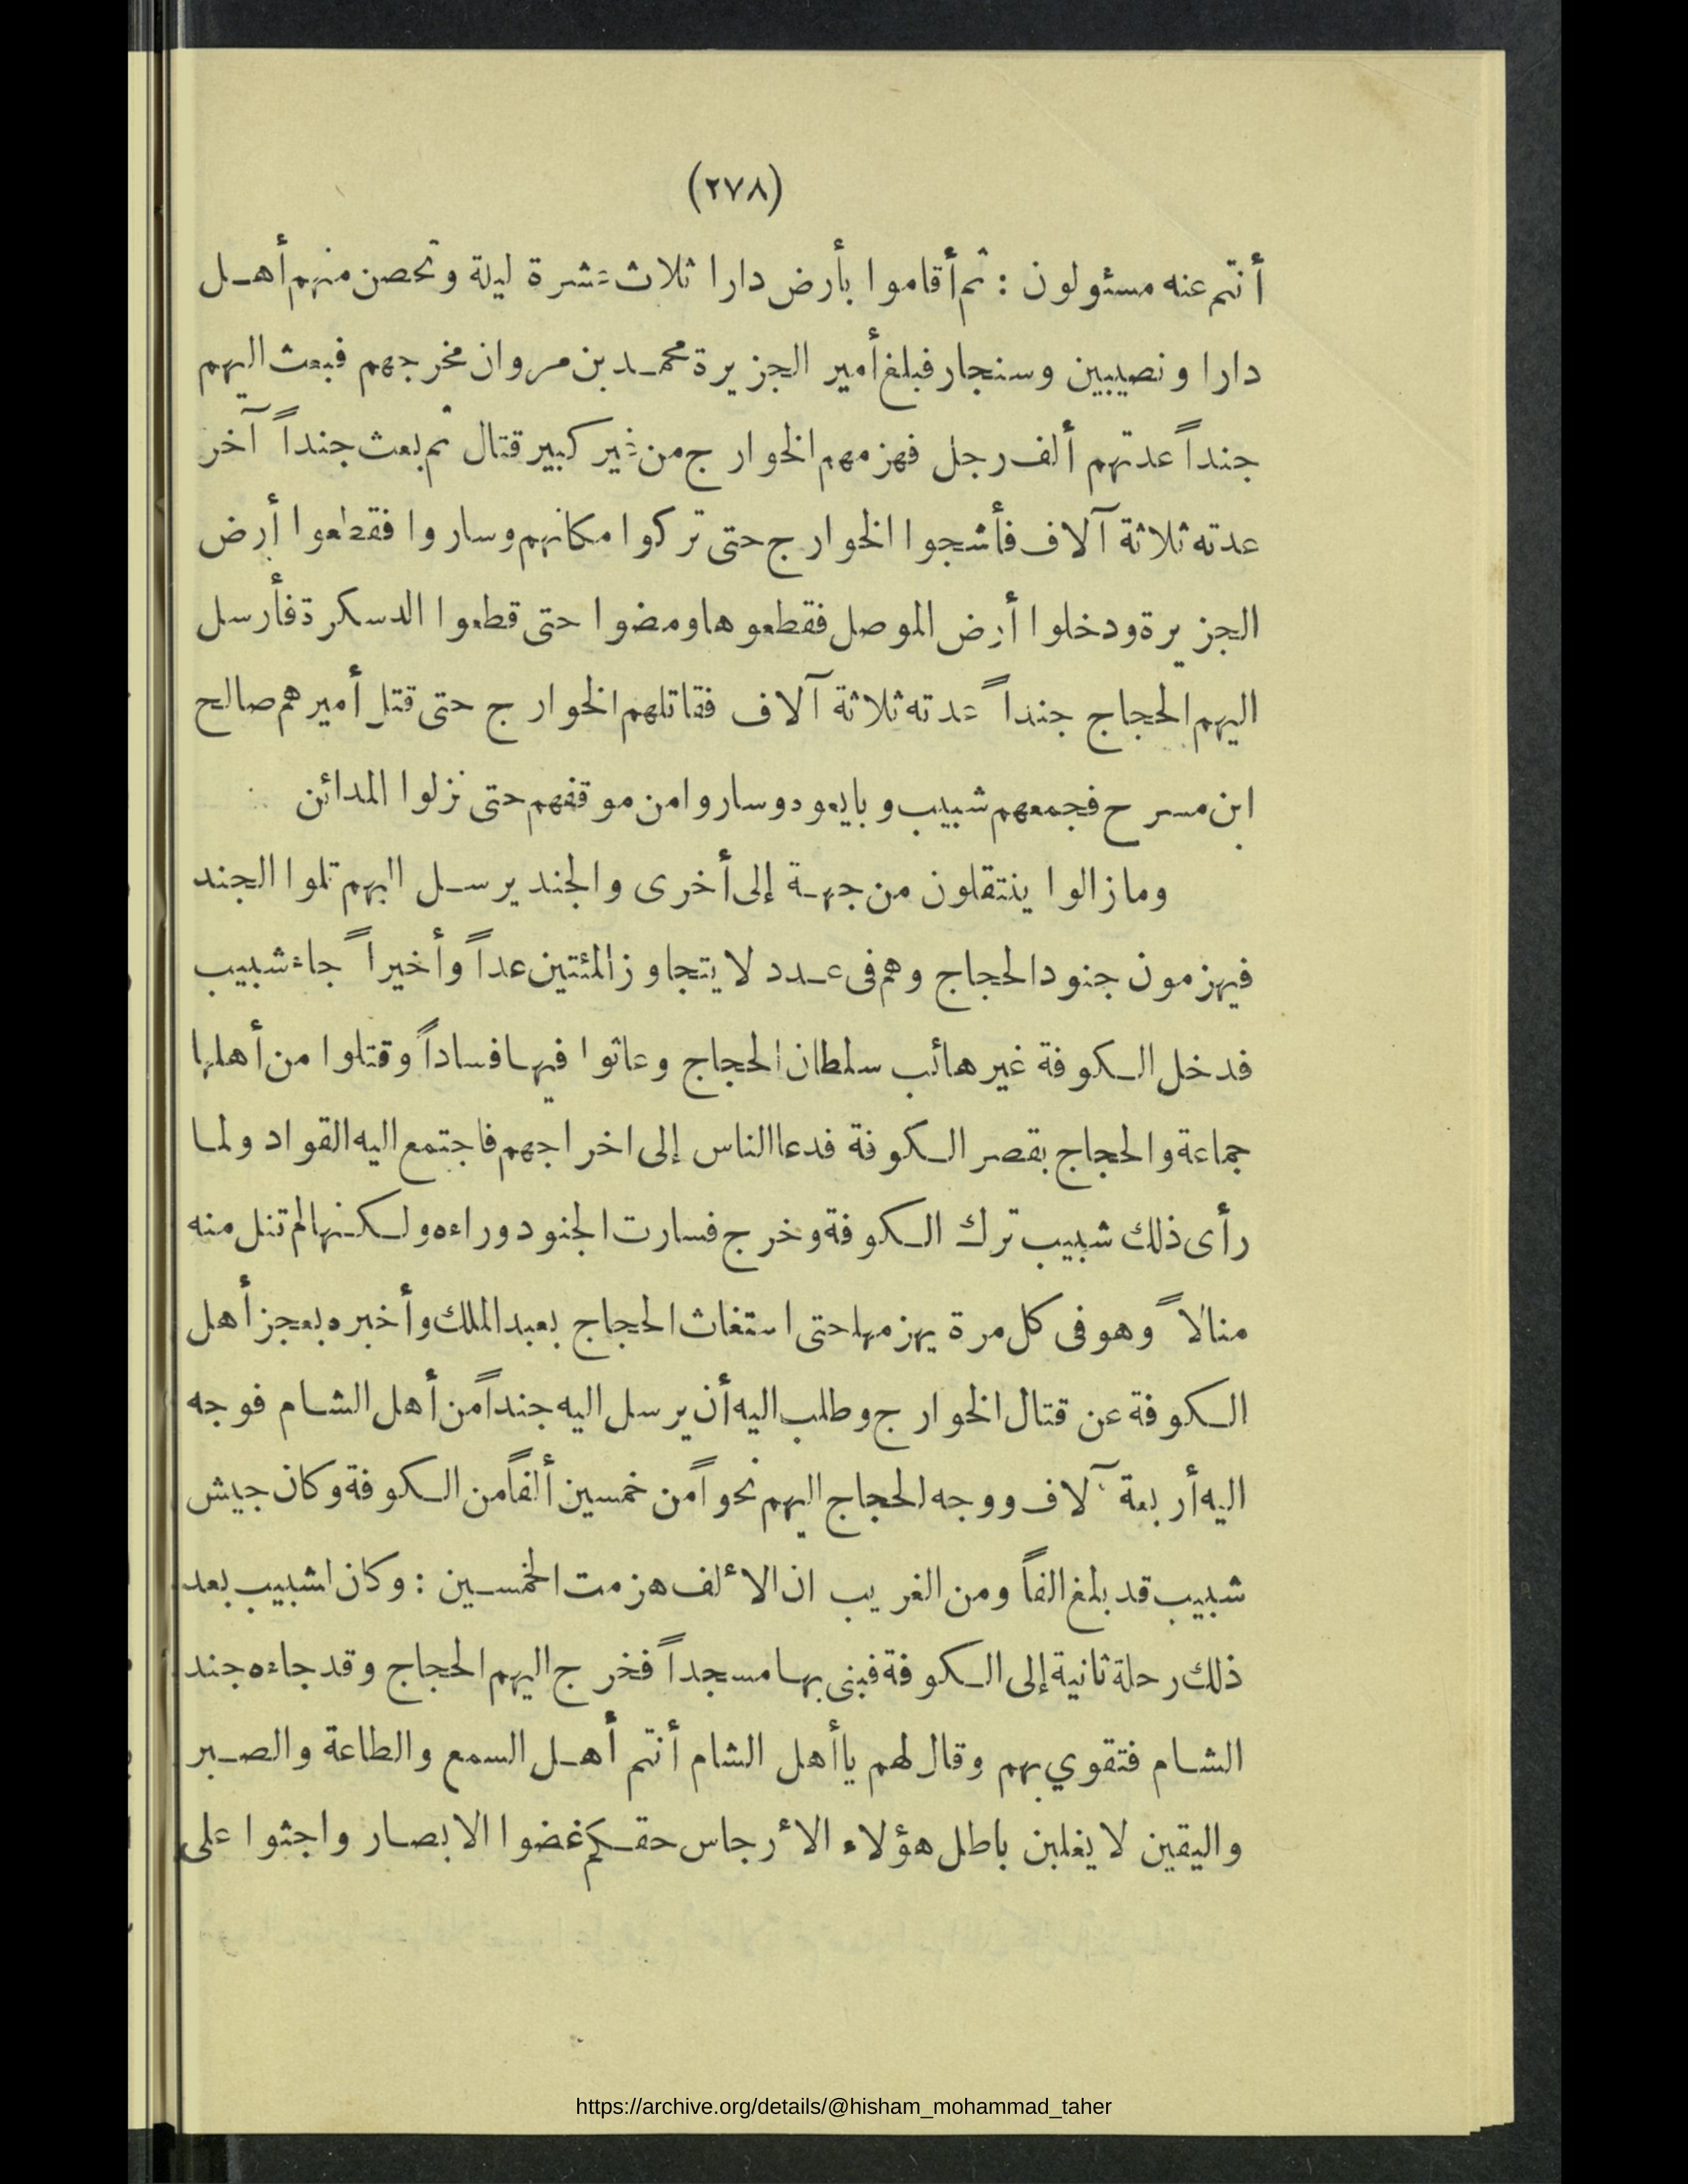 (٢٧٨)
أنتم عنه مسئولون : ثم أقاموا بأرض دارا ثلاث عشرة ليلة وتحصن منهم أهل
دارا ونصيبين وسنجار فبلغ أمير الجزيرة محمد بن مروان مخرجهم فبعث اليهم
جنداً عدتهم ألف رجل فهزمهم الخوارج من غير كبير قتال ثم بعث جنداً آخر
عدته ثلاثة آلاف فأشجوا الخوارج حتى تركوا مكانهم وساروا فقطعوا أرض
الجزيرة ودخلوا أرض الموصل فقطعوها ومضوا حتى قطعوا الدسكرة فأرسل
اليهم الحجاج جنداً عدته ثلاثة آلاف فقاتلهم الخوارج حتى قتل أميرهم صالح
ابن مسرح فجمعهم شبيب وبايعوه وساروا من موقفهم حتى نزلوا المدائن
وما زالوا ينتقلون من جهة إلى أخرى والجند يرسل اليهم تلوا الجند
فيهزمون جنود الحجاج وهم فى عدد لا يتجاوز المئتين عداً وأخيراً جاء شبيب
فدخل الكوفة غير هائب سلطان الحجاج وعاثوا فيها فساداً وقتلوا من أهلها
جماعة والحجاج بقصر الكوفة فدعا الناس إلى اخراجهم فاجتمع اليه القواد ولما
رأى ذلك شبيب ترك الكوفة وخرج فسارت الجنود وراءه ولكنها لم تنل منه
منالاً وهو فى كل مرة يهزمها حتى استغاث الحجاج بعبد الملك وأخبره بعجز أهل
الكوفة عن قتال الخوارج وطلب اليه أن يرسل اليه جنداً من أهل الشام فوجه
اليه أربعة آلاف ووجه الحجاج اليهم نحواً من خمسين ألفاً من الكوفة وكان جيش
شبيب قد بلغ الفاً ومن الغريب ان الألف هزمت الخمسين : وكان لشبيب بعد
ذلك رحلة ثانية إلى الكوفة فبنى بها مسجداً فخرج اليهم الحجاج وقد جاءه جند
الشام فتقوي بهم وقال لهم ياأهل الشام أنتم أهل السمع والطاعة والصبر
واليقين لا يغلبن باطل هؤلاء الأرجاس حقكم غضوا الابصار واجثوا على
https://archive.org/details/@hisham_mohammad_taher